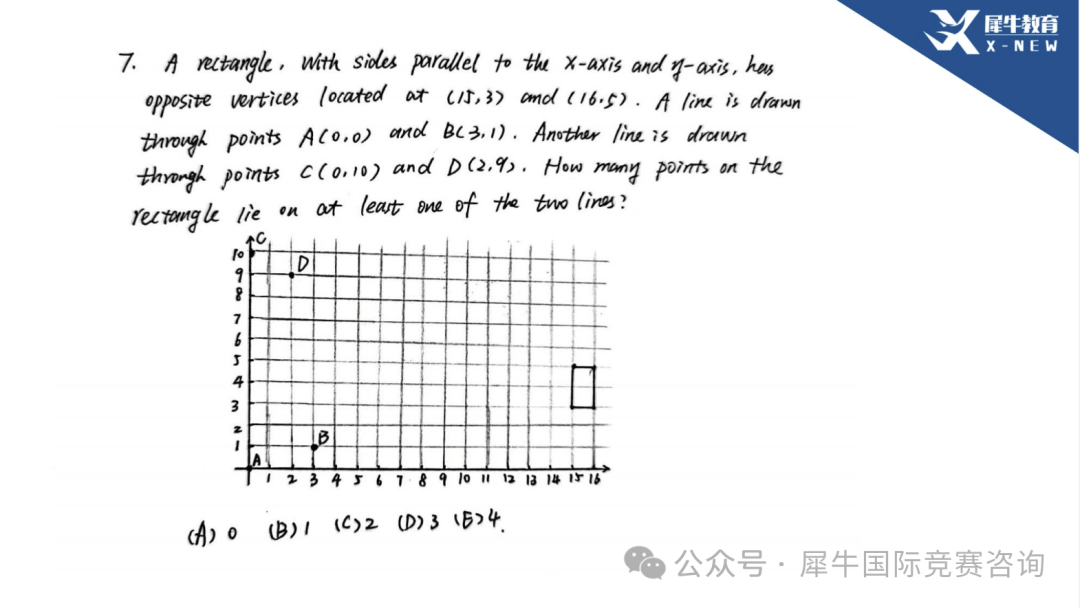 犀牛教育
X-NEW
7. A rectangle, with sides parallel to the x-axis and y-axis, has
opposite vertices located at (15,3) and (16.5). A line is drawn
through points A(0,0) and B(3,1). Another line is drawn
through points C(0,10) and D(2,9). How many points on the
rectangle lie on at least one of the two lines?
C
10
D
9
8
7
6
5
4
3
2
1
B
A
1 2 3 4 5 6 7 8 9 10 11 12 13 14 15 16
(A) 0 (B) 1 (C) 2 (D) 3 (E) 4.
公众号 · 犀牛国际竞赛咨询